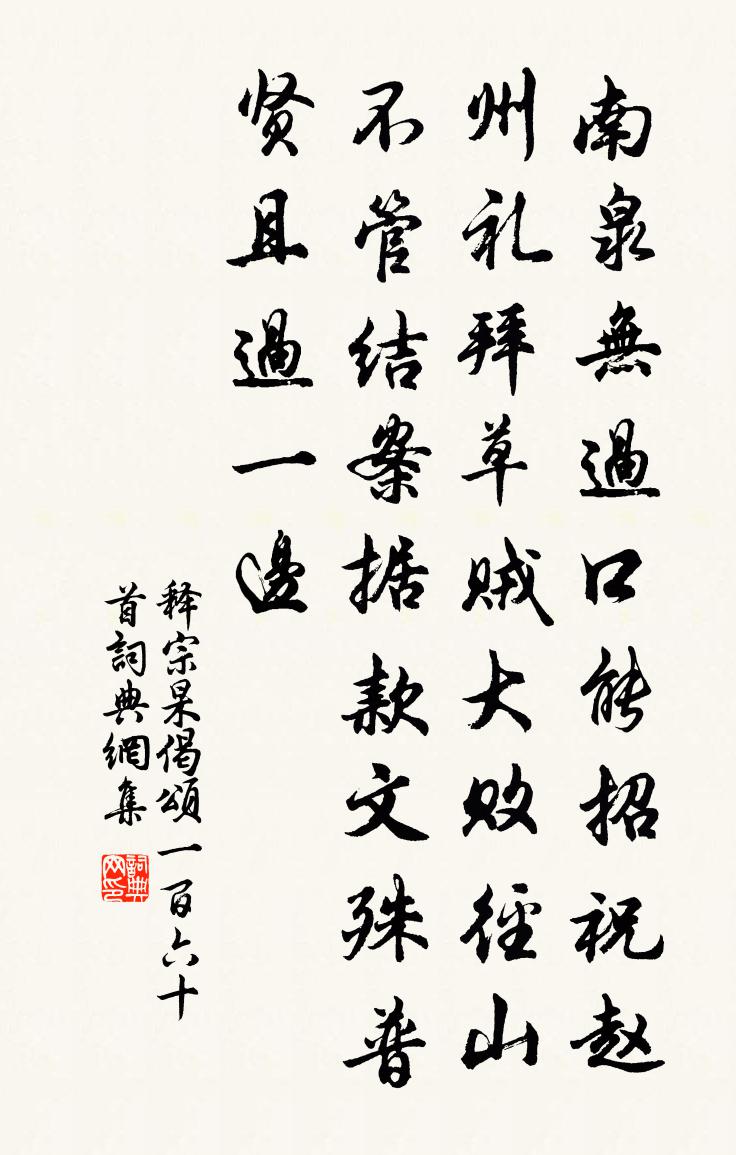 南泉無過口能招祝赵
州礼拜草贼大败径山
不管结案据款文殊普
贤且過一邊
释宗杲偈頌一百六十
首詞典網集
詞典网印